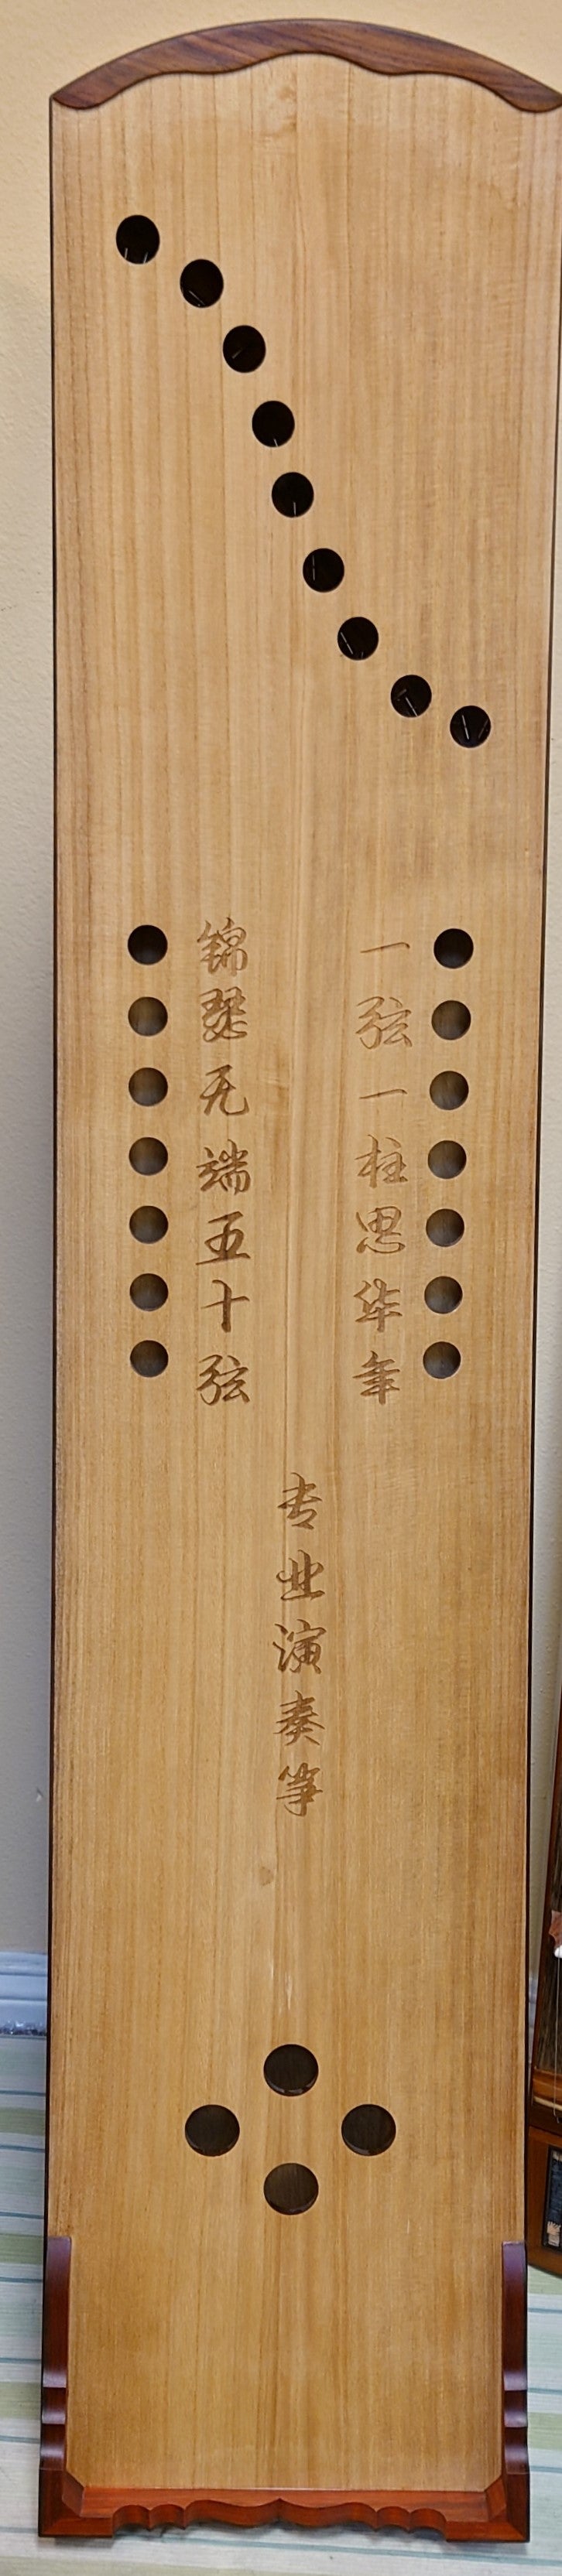 锦瑟无端五十弦
一弦一柱思华年
专业演奏筝